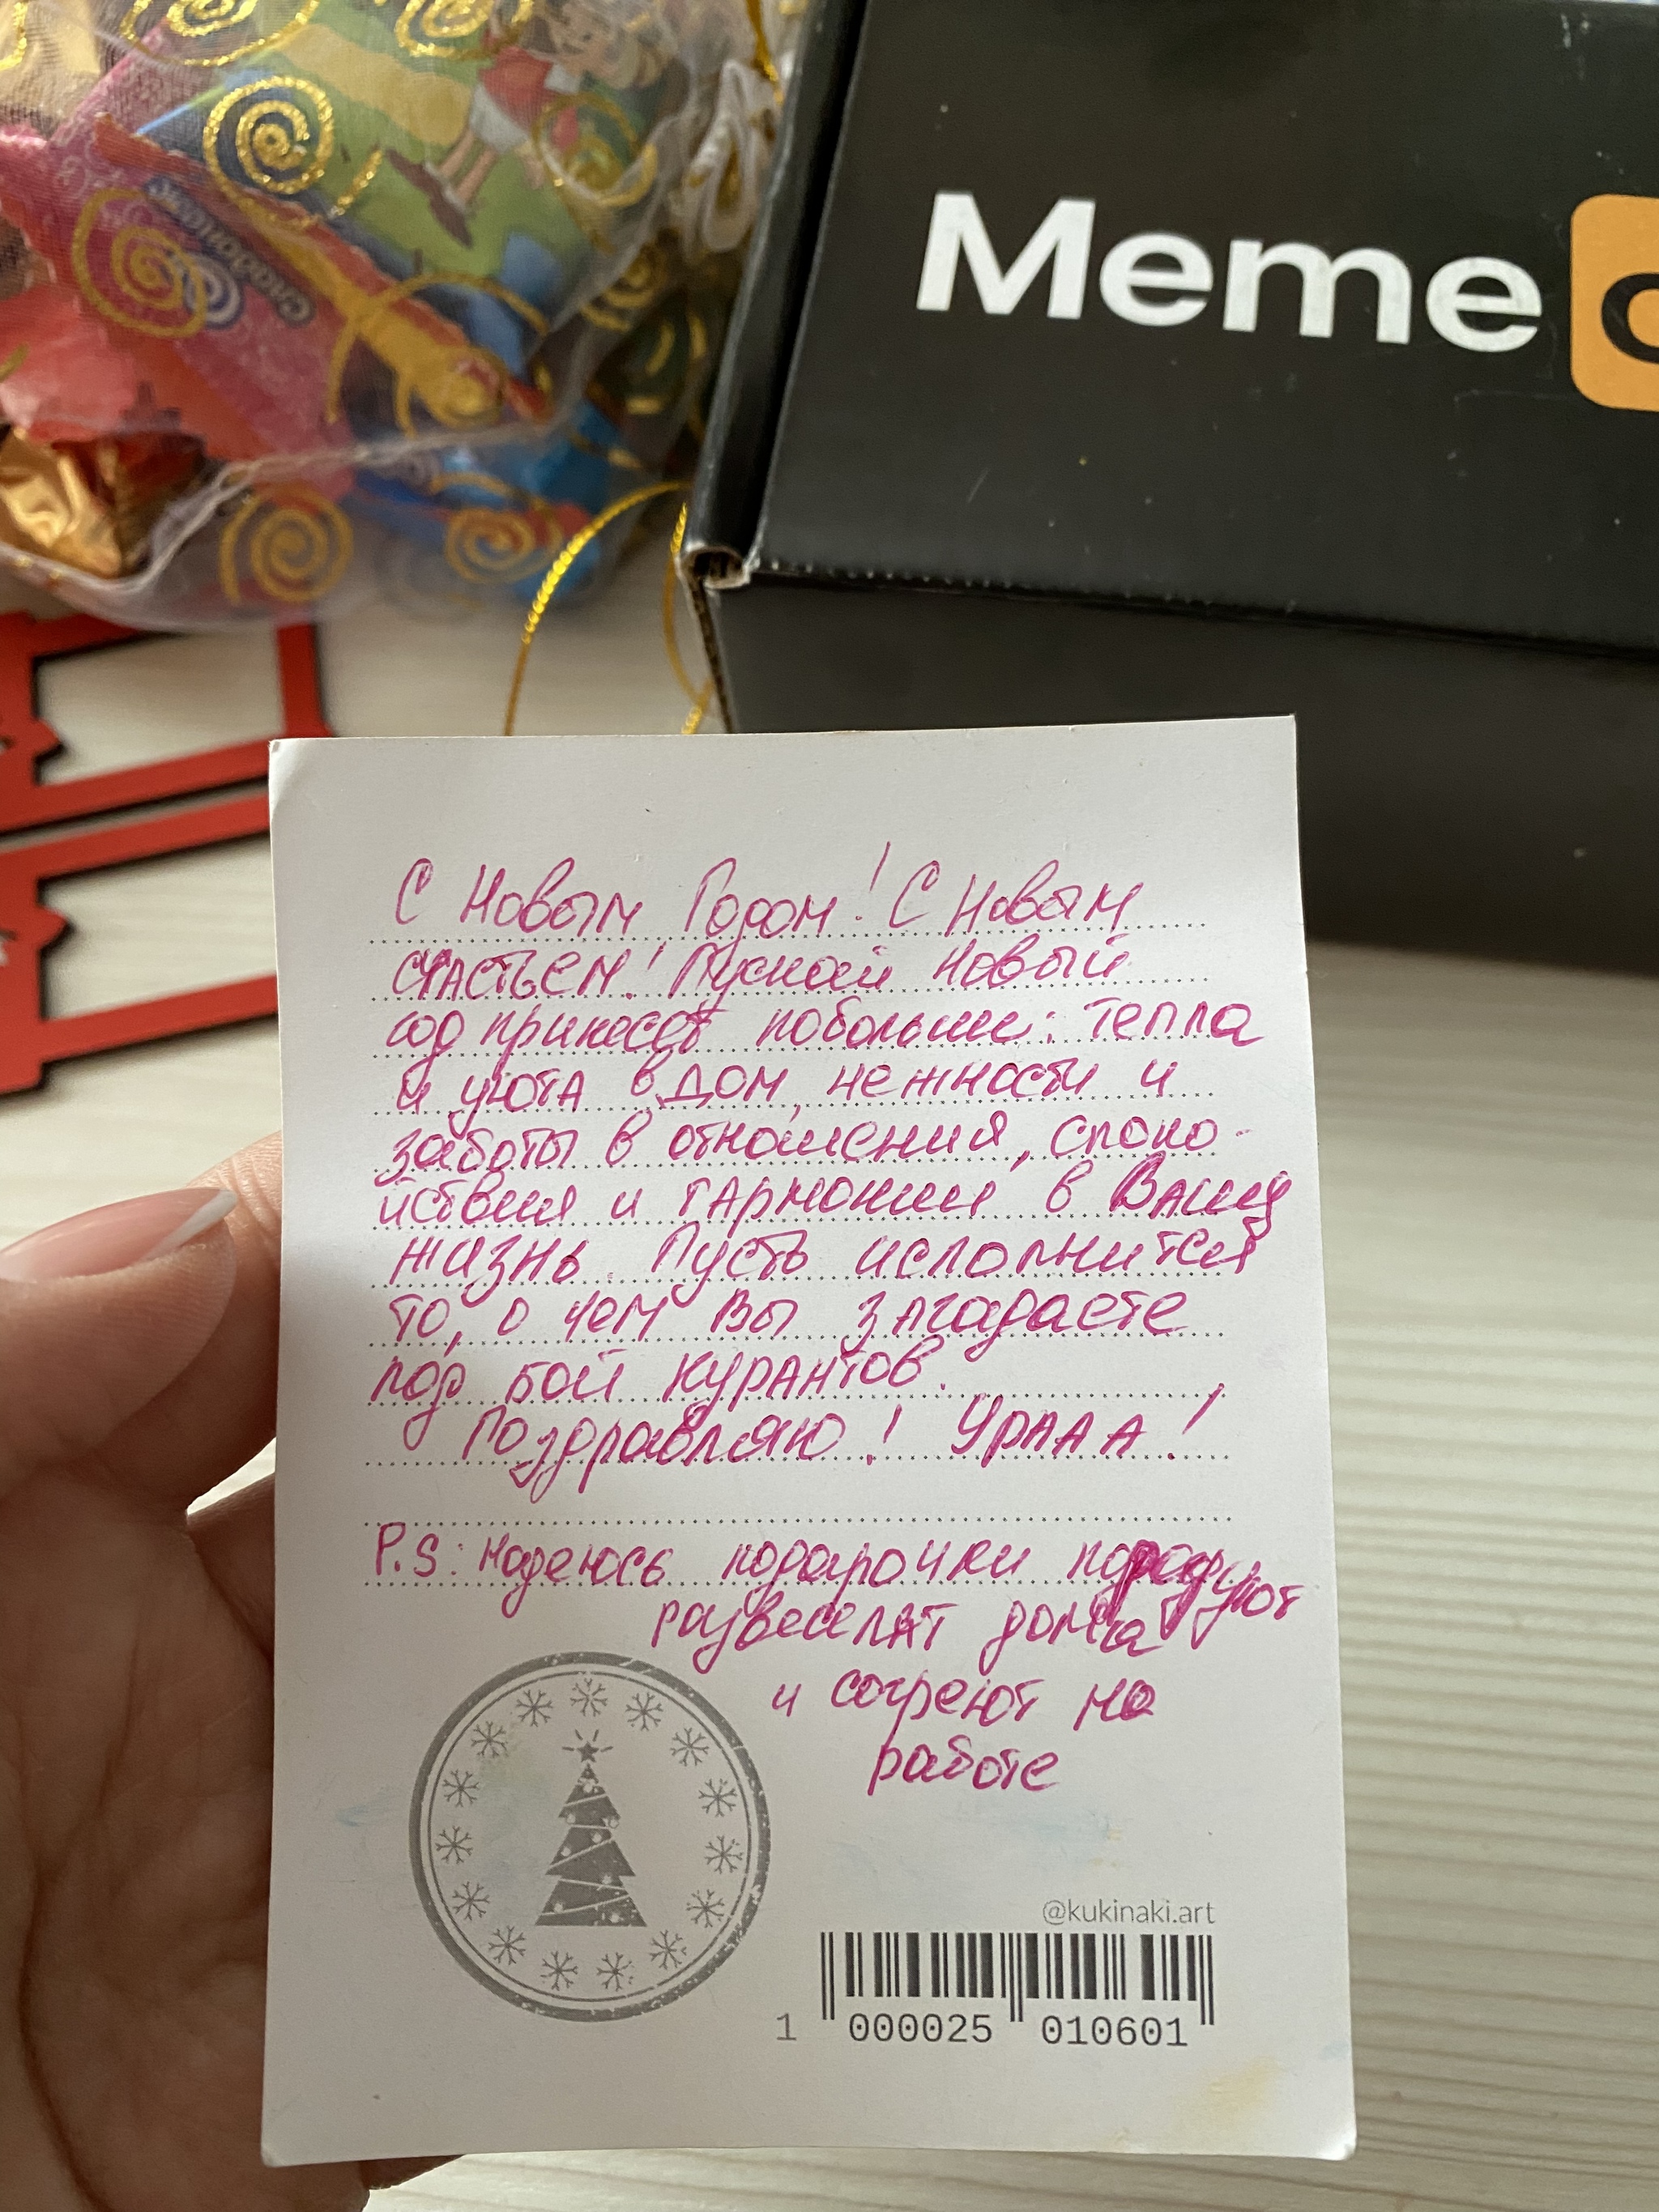 Meme
С Новым Годом! С Новым
счастьем! Пускай Новый
год принесет побольше: тепла
и уюта в дом, нежности и
заботы в отношения, споко-
йствия и гармонии в Вашу
жизнь. Пусть исполнится
то, о чем Вы загадаете
под бой курантов.
Поздравляю! Урааа!
P.S: Надеюсь подарочки порадуют
развеселят дома
и согреют на
работе
@kukinaki.art
1 000025 010601